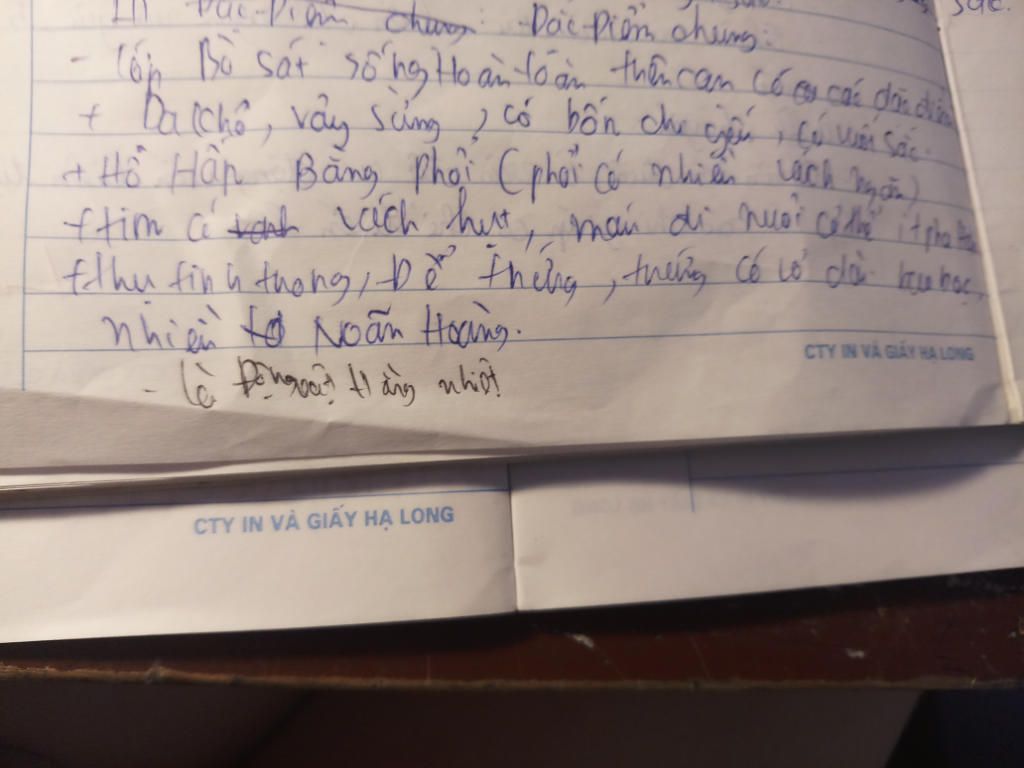 III Đặc Điểm chung: Đặc Điểm chung:
- lớp Bò sát sống Hoàn toàn trên cạn có các đặc điểm
+ Da khô, vảy sừng, có bốn chi yếu, có vuốt sắc.
+ Hô Hấp Bằng phổi (phổi có nhiều vách ngăn)
+ tim có vách hụt, máu đi nuôi cơ thể ít pha
+ thụ tinh trong, Đẻ trứng, trứng có vỏ dai bọc,
nhiều Noãn Hoàng.
CTY IN VÀ GIẤY HẠ LONG
- là Động vật Hằng nhiệt
CTY IN VÀ GIẤY HẠ LONG